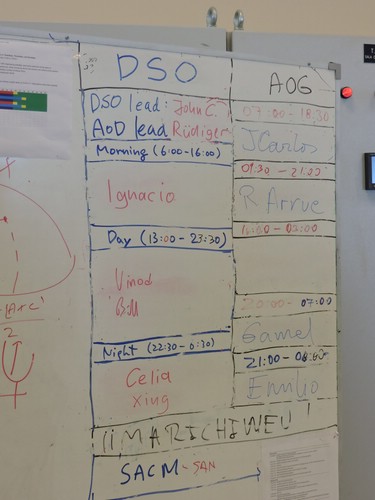 DSO
DSO lead: John C.
AoD lead Rüdiger
Morning (6:00-16:00)
Ignacio
Day (13:00 - 23:30)
Vinod
Bill
Night (22:30 - 6:30)
Celia
Xing
AOG
07:00 - 18:30
JCarlos
R Arrue
- 07:00
Gamel
21:00 -
Emilio
¡¡MARICHIWEU!
SACM - SAN